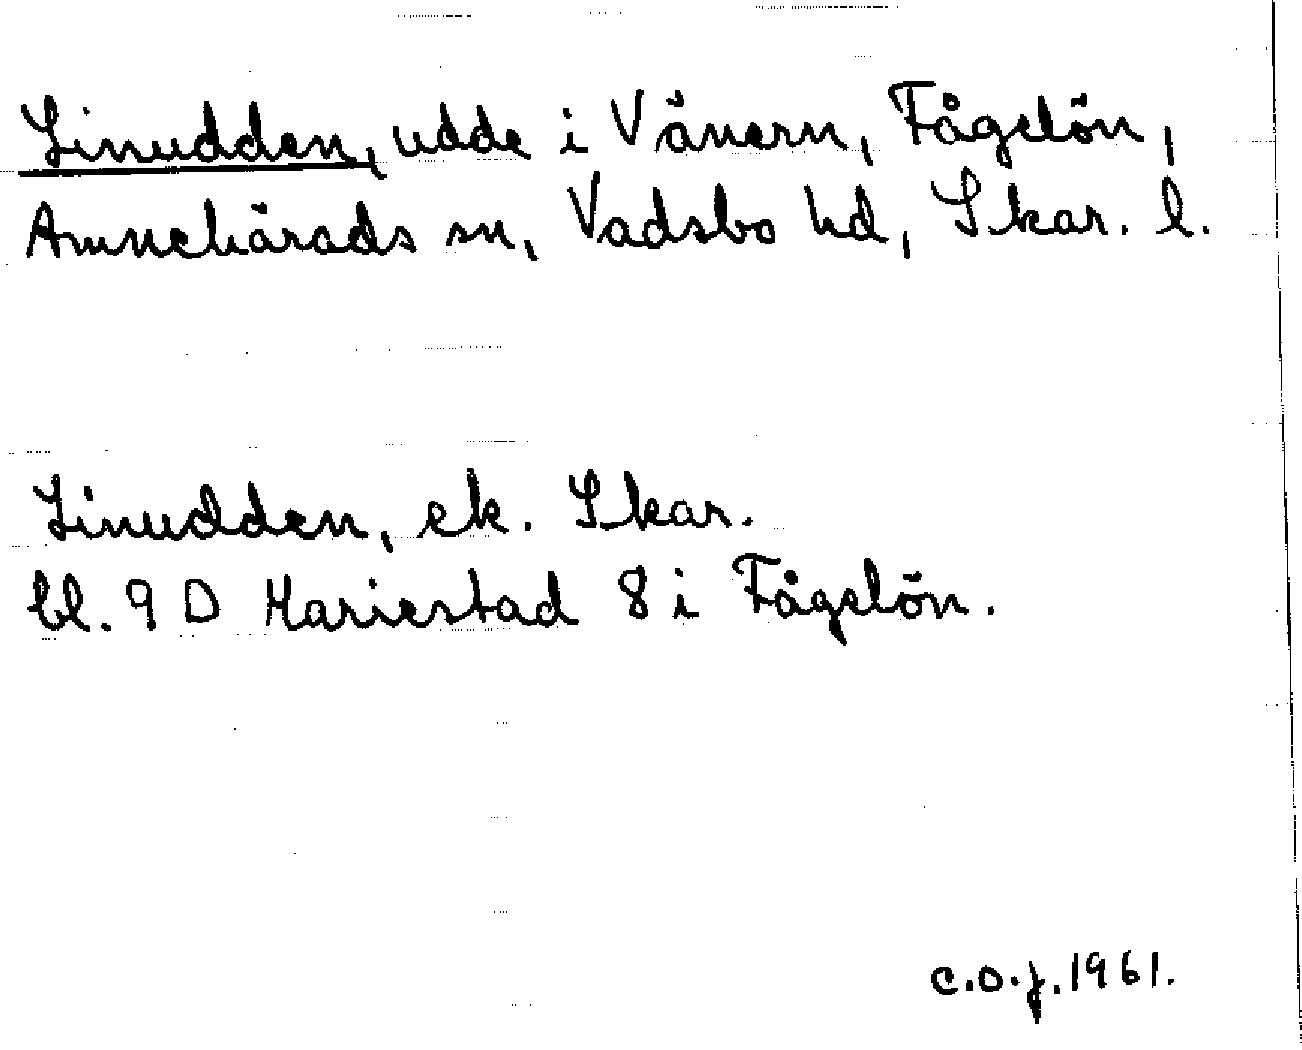 Linudden, udde i Vänern, Fågelön,
Amnehärads sn, Vadsbo hd, Skar. l.
Linudden, ek. Skar.
bl. 9 D Mariestad 8 i Fågelön.
C.O.J. 1961.